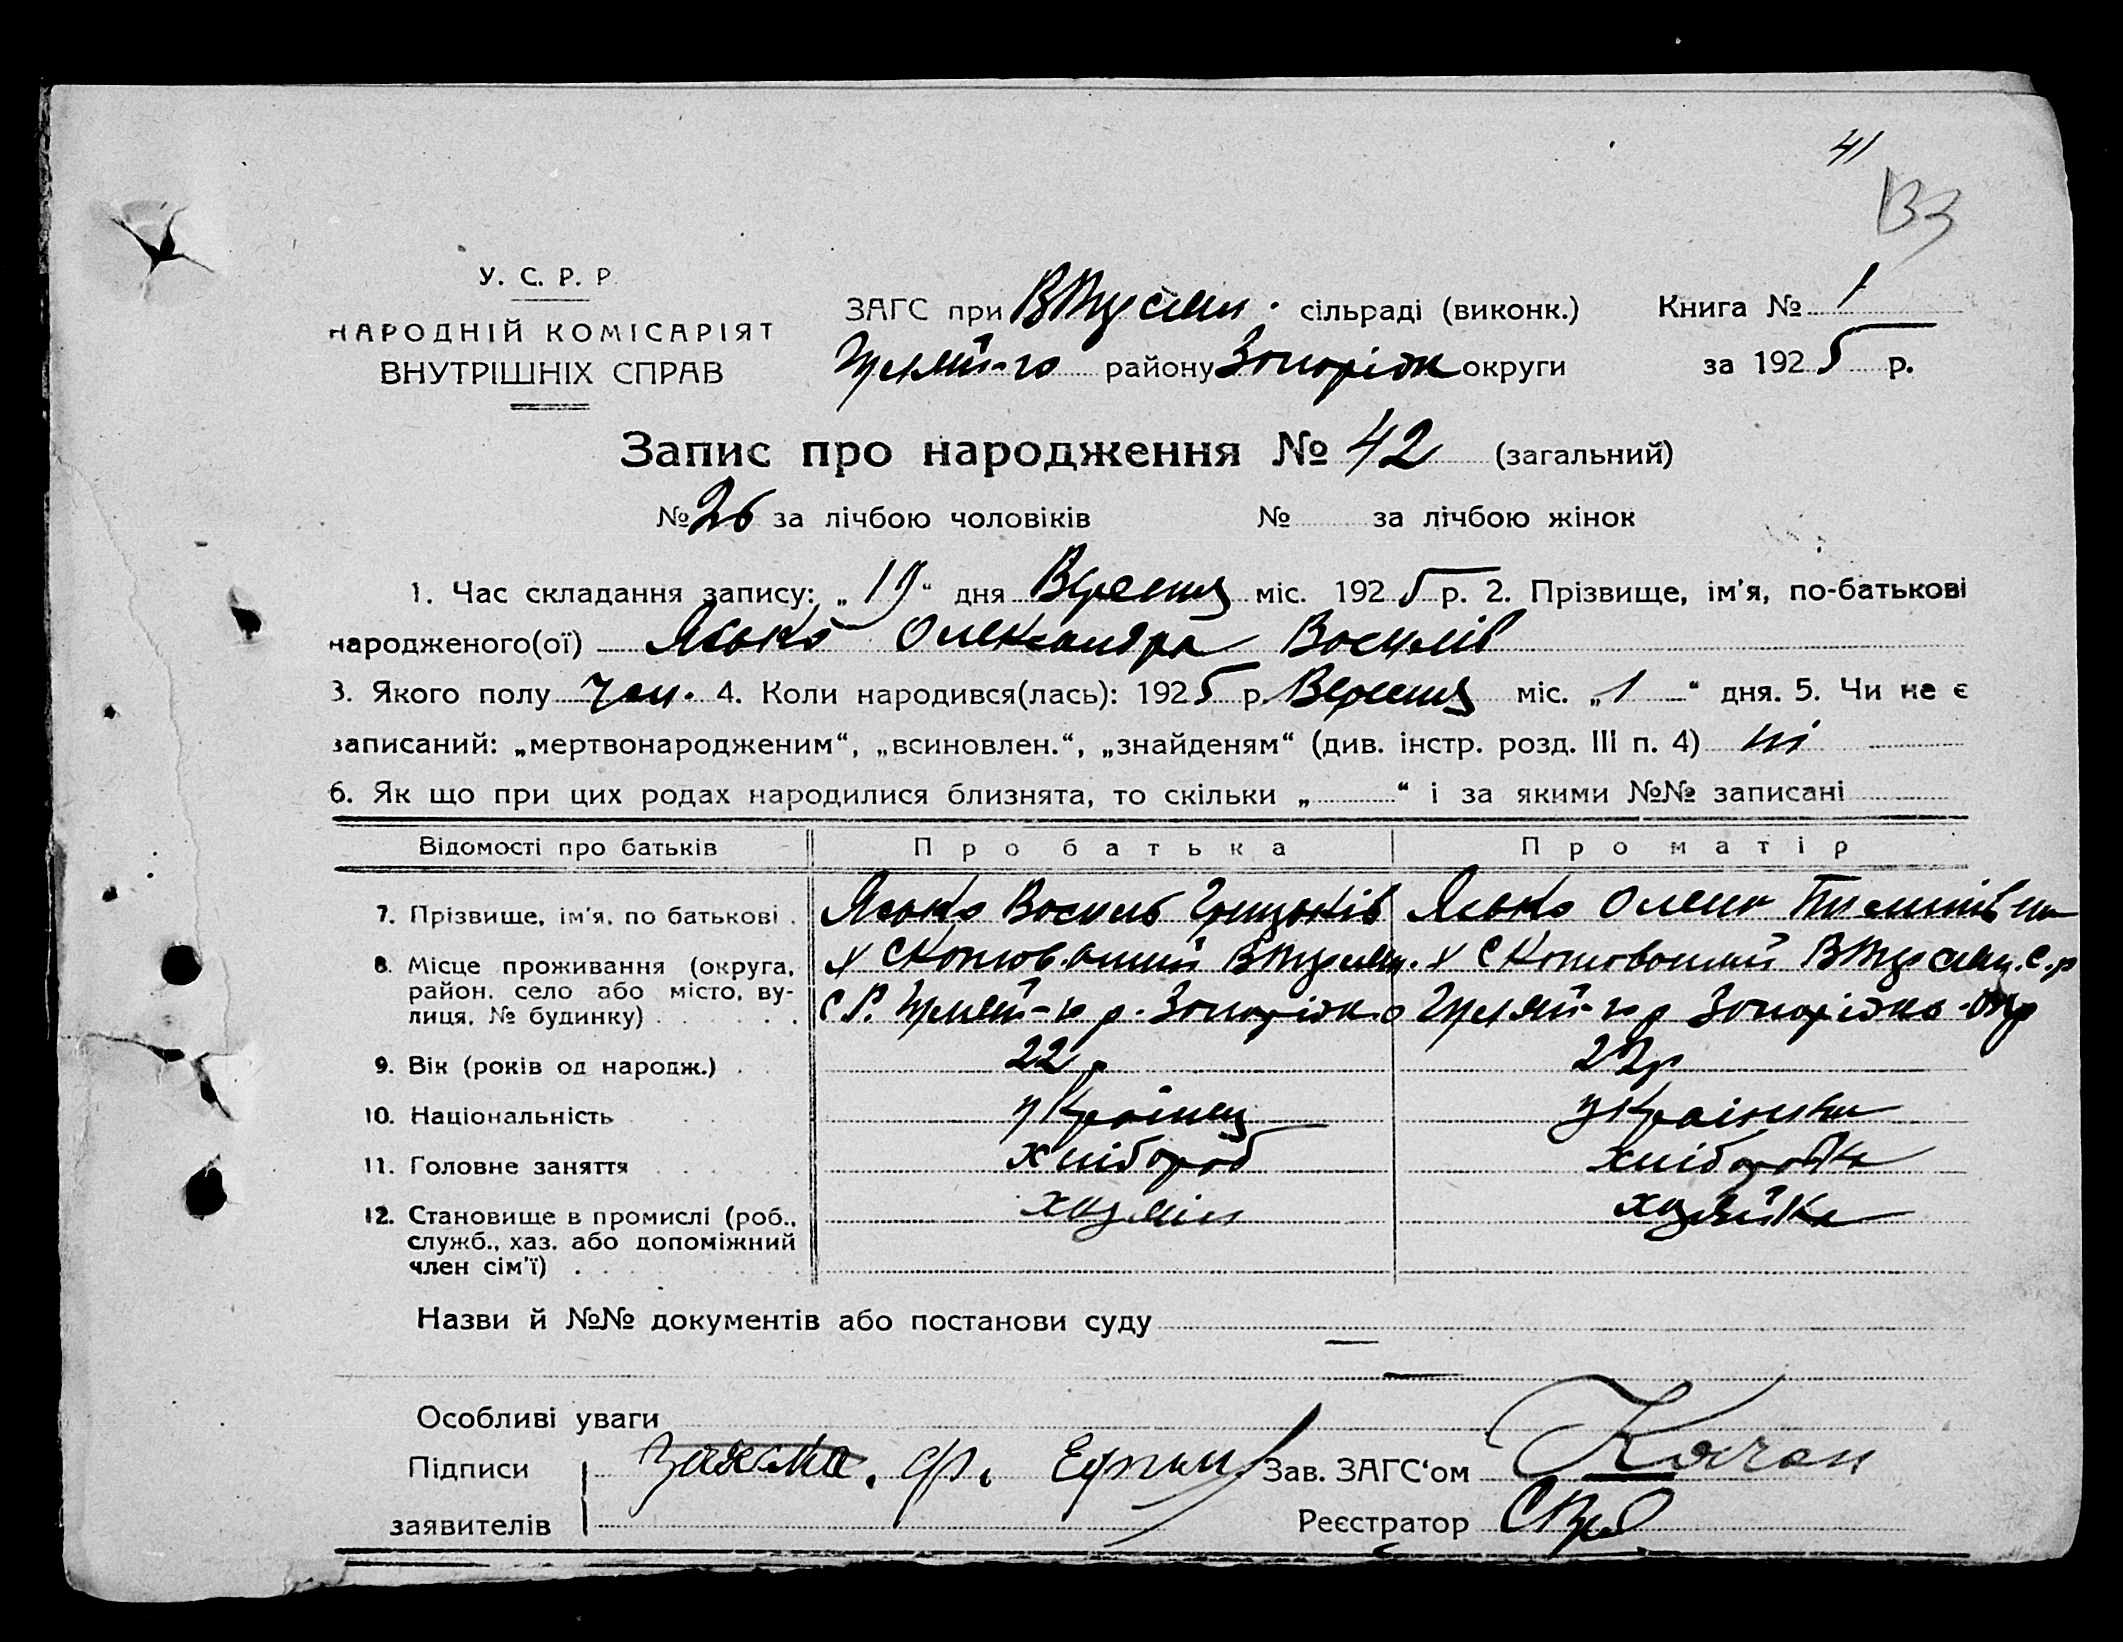 41
133
У. С. Р. Р.
НАРОДНІЙ КОМІСАРІЯТ
ВНУТРІШНІХ СПРАВ
ЗАГС при сільраді (виконк.) Книга № 1
району Запоріж округи за 1925 р.
Запис про народження № 42 (загальний)
№ 26 за лічбою чоловіків № за лічбою жінок
1. Час складання запису: „19“ дня Вересня міс. 1925 р. 2. Прізвище, ім'я, по-батькові
народженого(ої) Ясько Олександра Василів
3. Якого полу чол. 4. Коли народився(лась): 1925 р. Вересня міс. „1“ дня. 5. Чи не є
записаний: „мертвонародженим“, „всиновлен.“, „знайденям“ (див. інстр. розд. III п. 4) ні
6. Як що при цих родах народилися близнята, то скільки „ “ і за якими №№ записані
Відомості про батьків Про батька Про матір
7. Прізвище, ім'я, по батькові Ясько Василь Грицьків Ясько Олена
8. Місце проживання (округа,
район, село або місто, ву-
лиця, № будинку)
9. Вік (років од народж.) 22 р 22 р
10. Національність українец українка
11. Головне заняття хлібороб хліборобка
12. Становище в промислі (роб., хазяін хазяйка
служб., хаз. або допоміжний
член сім'ї)
Назви й №№ документів або постанови суду
Особливі уваги
Підписи Зав. ЗАГС‘ом Качан
заявителів Реєстратор